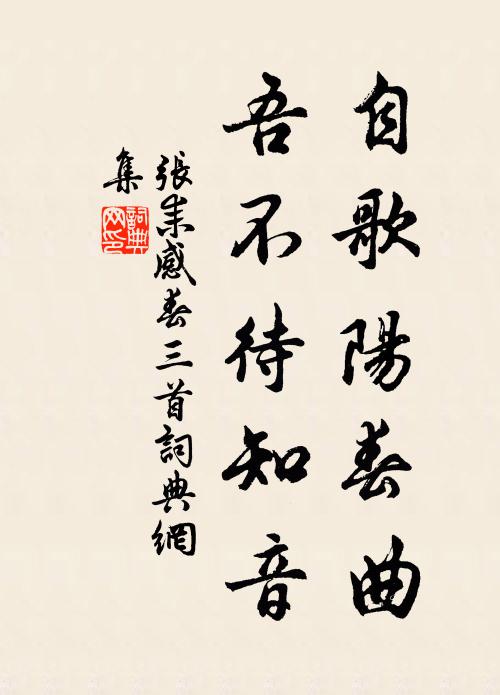 自歌陽春曲
吾不待知音
張耒感春三首詞典網
集
詞典
网印